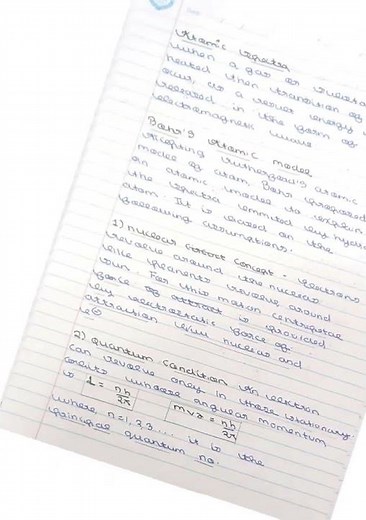 Atomic Spectra
When a gas or
heated then transition of
occur as a result energy
released in the form of
electromagnetic wave
Bohr's Atomic model
Accepting Rutherford's atomic
model of atom, Bohr proposed
an atomic model to explain
the spectra emmited by hydro
atom. It is based on the
following assumptions.
1) nuclear concept - electrons
revolve around the nucleus
like planents revolve around
sun. For this motion centripetal
force of attract is provided
by electrostatic force of
attraction b/w nucleus and
e⊖
2) Quantum condition
can revolve only in those stationary
orbits whose angular momentum
is L = nh/2π mvr = nh/2π
where, n=1,2,3.... it is the
principal quantum no.